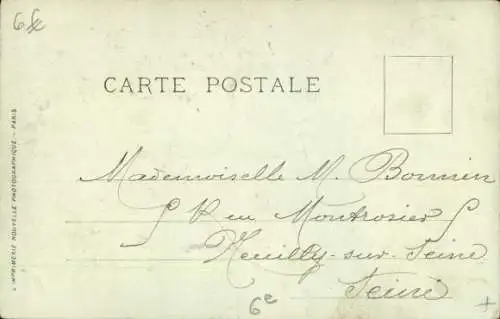 6fx
CARTE POSTALE
Mademoiselle M. Bonnin
5 Rue Montrosier 5
Neuilly-sur-Seine
Seine
6e
L'IMPRIMERIE NOUVELLE PHOTOGRAPHIQUE — PARIS